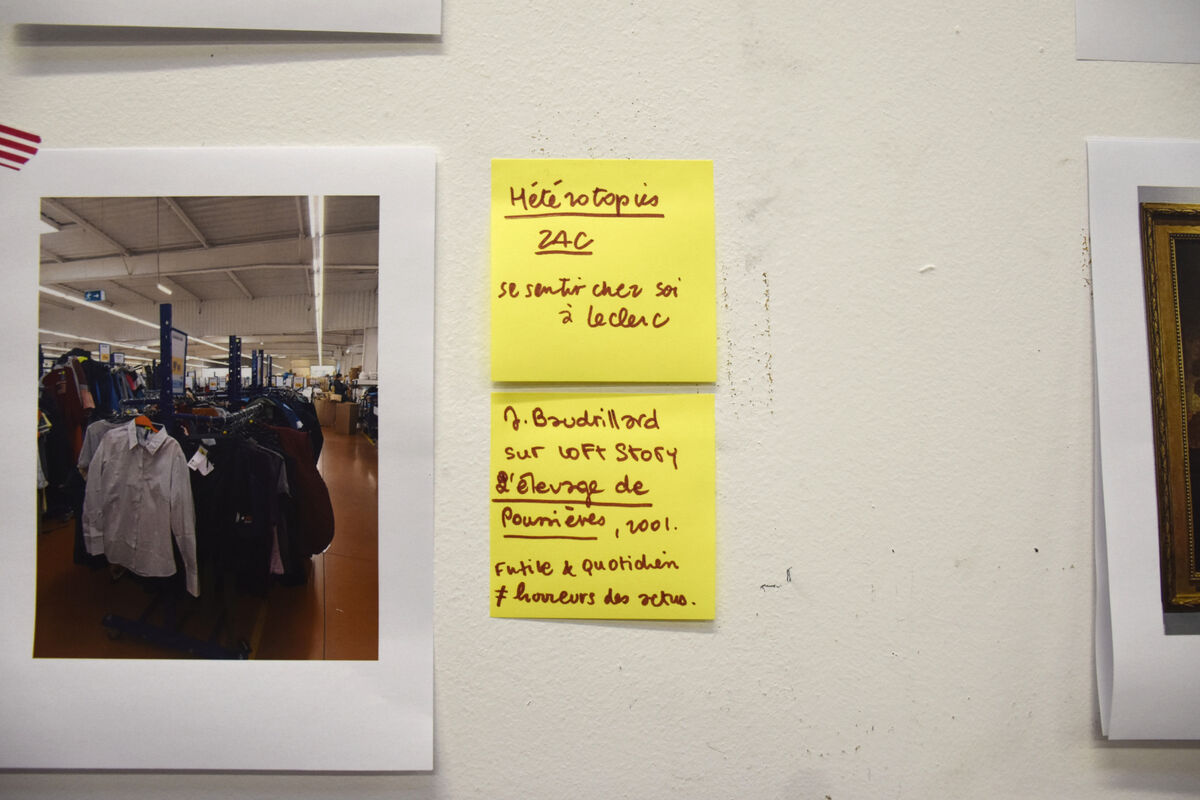 Hétérotopies
ZAC
se sentir chez soi
à Leclerc
J. Baudrillard
sur LOFT STORY
L'élevage de
Poussières, 2001.
Futile & quotidien
≠ horreurs des actus.